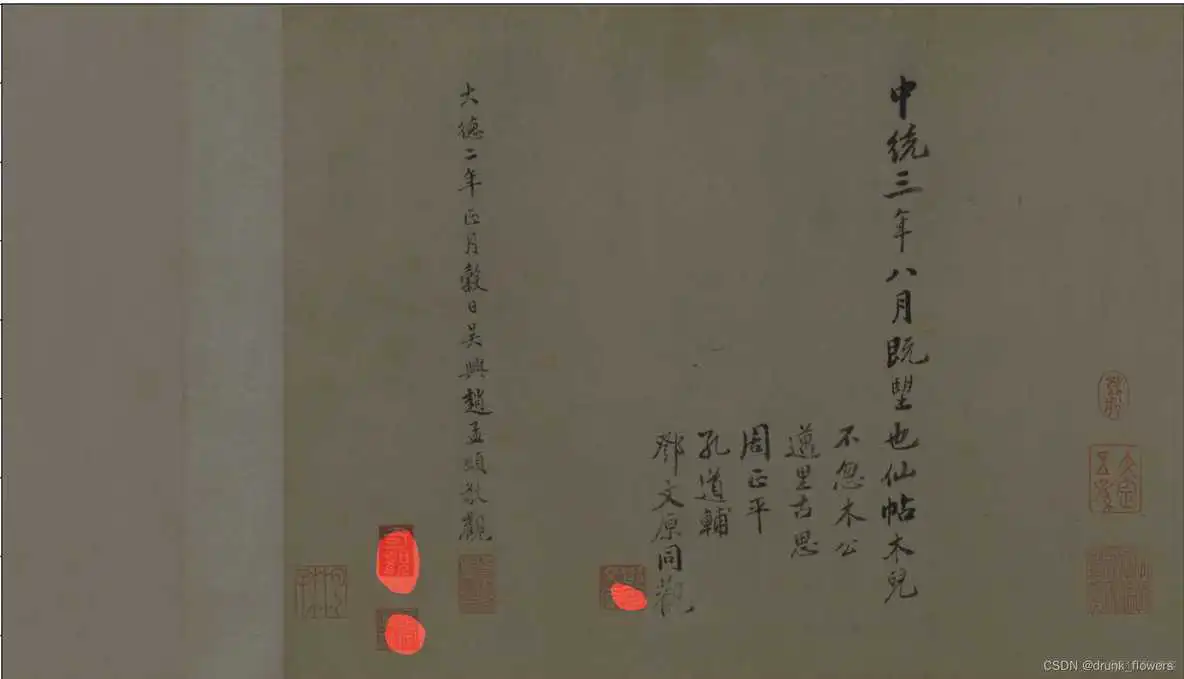 中統三年八月既望也仙帖木兒
不忽木公
遵里古思
周正平
孔道輔
鄧文原同觀
大德二年正月穀日吳興趙孟頫敬觀
CSDN @drunk_flowers